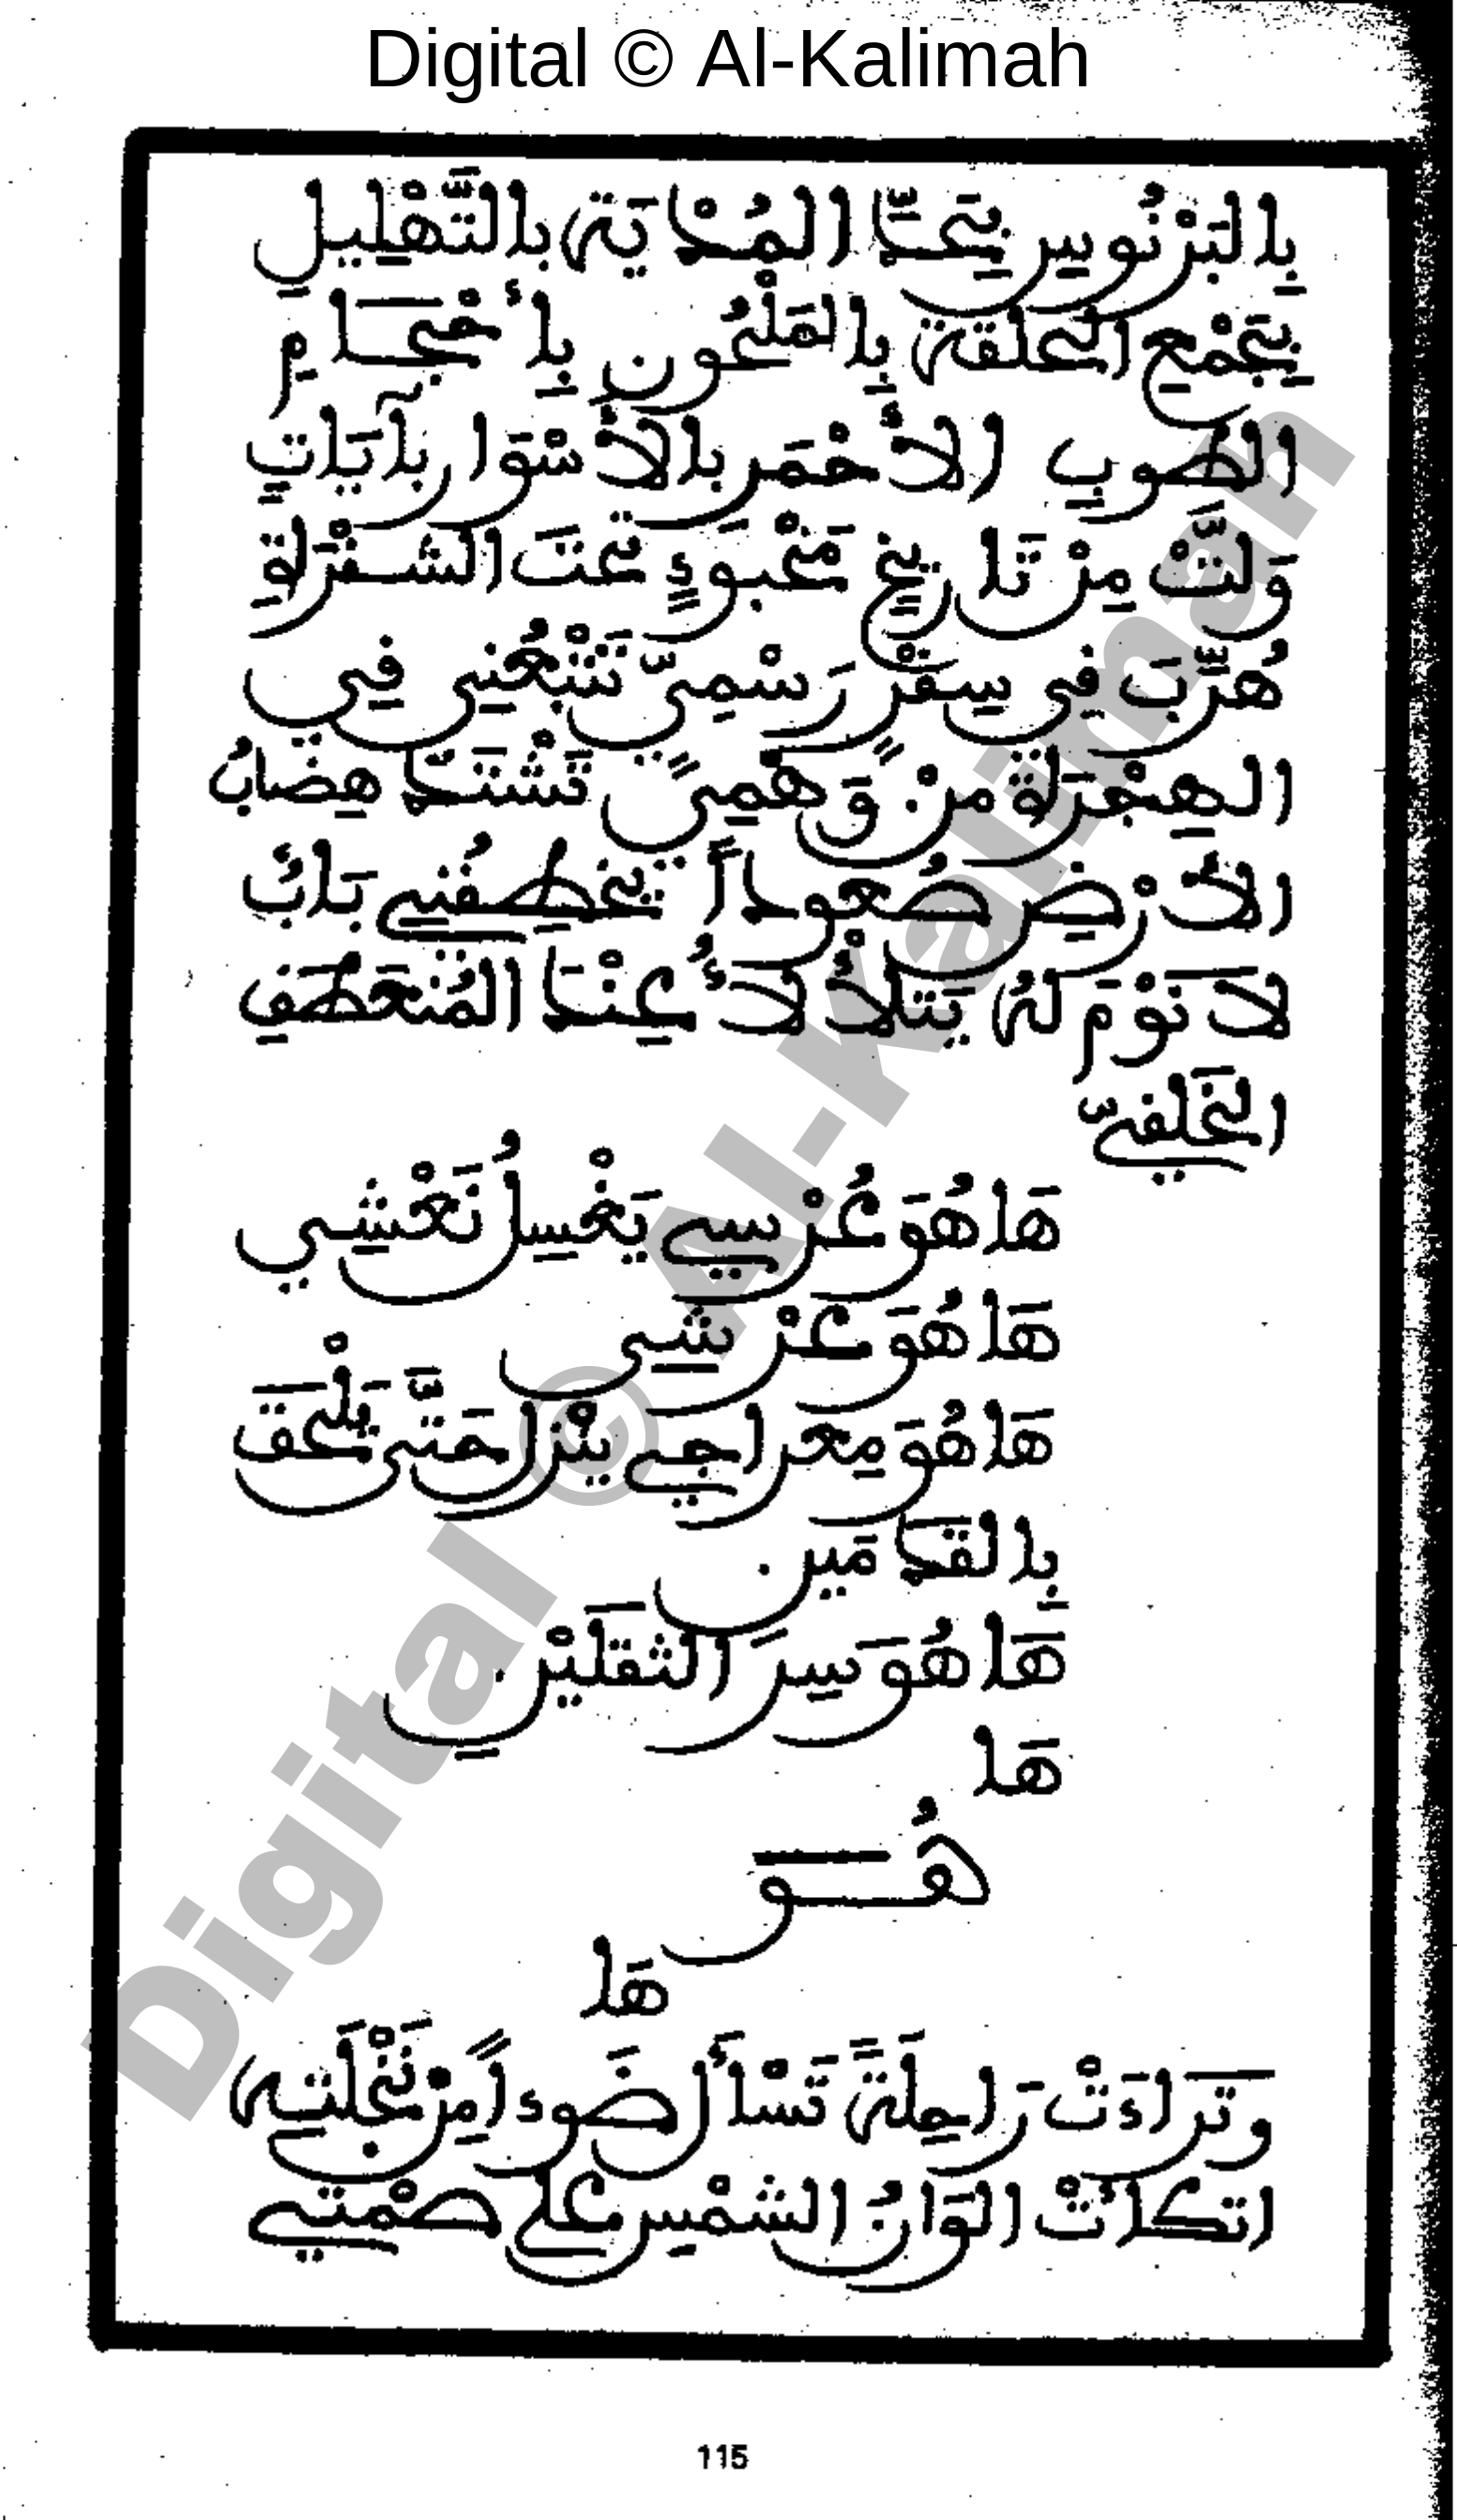 Digital © Al-Kalimah
بِالبَرْنُوسِ يَتَحَدَّ المُدْيَةَ بالتَّهْلِيلِ
يَجْمَعِ الحَلْقَةَ بِالمَلْحُونِ بِأَحْجَامِ
الطوبِ الأحْمَرِ بالأسْوَارِ بآيَاتٍ
وَلَّتْ مِنْ تَارِيخٍ مَخْبُوءٍ تَحْتَ الشَّفْرَةِ
هُرِّبَ فِي سِفْرٍ رَسْمِيٍّ تَتْبَعُنِي فِي
الهِجْرَةِ مِنْ وَهْمِي تَشْتَدُّ هِضَابُ
الأرْضِ صُعوداً تَخْطِفُنِي بَابٌ
لا نَوْمَ لَهُ يَتَلأْلأُ عِنْدَ المُنْعَطَفِ
الخَلْفِيّ
هَا هُوَ عُرْسِي يَغْسِلُ نَعْشِي
هَا هُوَ عَرْشِي
هَا هُوَ مِعْراجِي يَنْزِلُ حَتَّى يَلْحَقَ
بِالقَدَمَيْنِ
هَا هُوَ سِرّ الثقَلَيْنِ
هَا
هُوَ
هَا
وتَراءَتْ رَاحِلَةً تَسْأَلُ ضَوءاً مِنْ نَخْلَتِهَا
اتكأتْ ألْوَانُ الشمْسِ عَلى صَمْتِي
115
Digital © Al-Kalimah